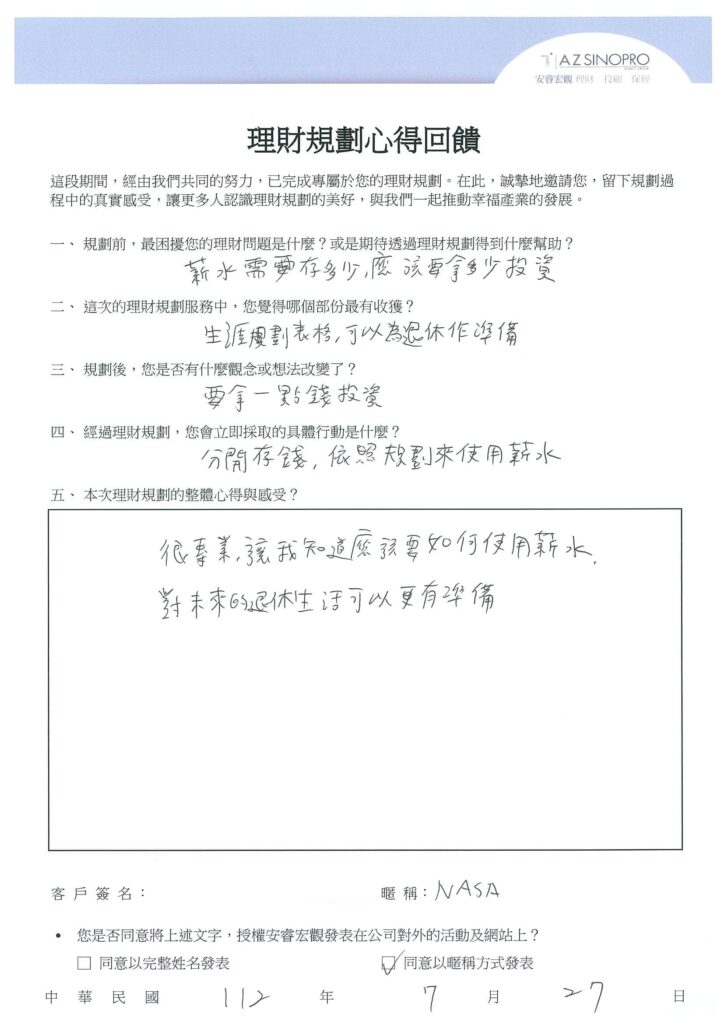 AZ SINOPRO
安睿宏觀 理財 投顧 保經
理財規劃心得回饋
這段期間，經由我們共同的努力，已完成專屬於您的理財規劃。在此，誠摯地邀請您，留下規劃過
程中的真實感受，讓更多人認識理財規劃的美好，與我們一起推動幸福產業的發展。
一、 規劃前，最困擾您的理財問題是什麼？或是期待透過理財規劃得到什麼幫助？
薪水需要存多少，應該要拿多少投資
二、 這次的理財規劃服務中，您覺得哪個部份最有收獲？
生涯規劃表格，可以為退休作準備
三、 規劃後，您是否有什麼觀念或想法改變了？
要拿一點錢投資
四、 經過理財規劃，您會立即採取的具體行動是什麼？
分開存錢，依照規劃來使用薪水
五、 本次理財規劃的整體心得與感受？
很專業，讓我知道應該要如何使用薪水，
對未來的退休生活可以更有準備
客戶簽名： 暱稱：NASA
• 您是否同意將上述文字，授權安睿宏觀發表在公司對外的活動及網站上？
□ 同意以完整姓名發表 ☑ 同意以暱稱方式發表
中華民國 112 年 7 月 27 日